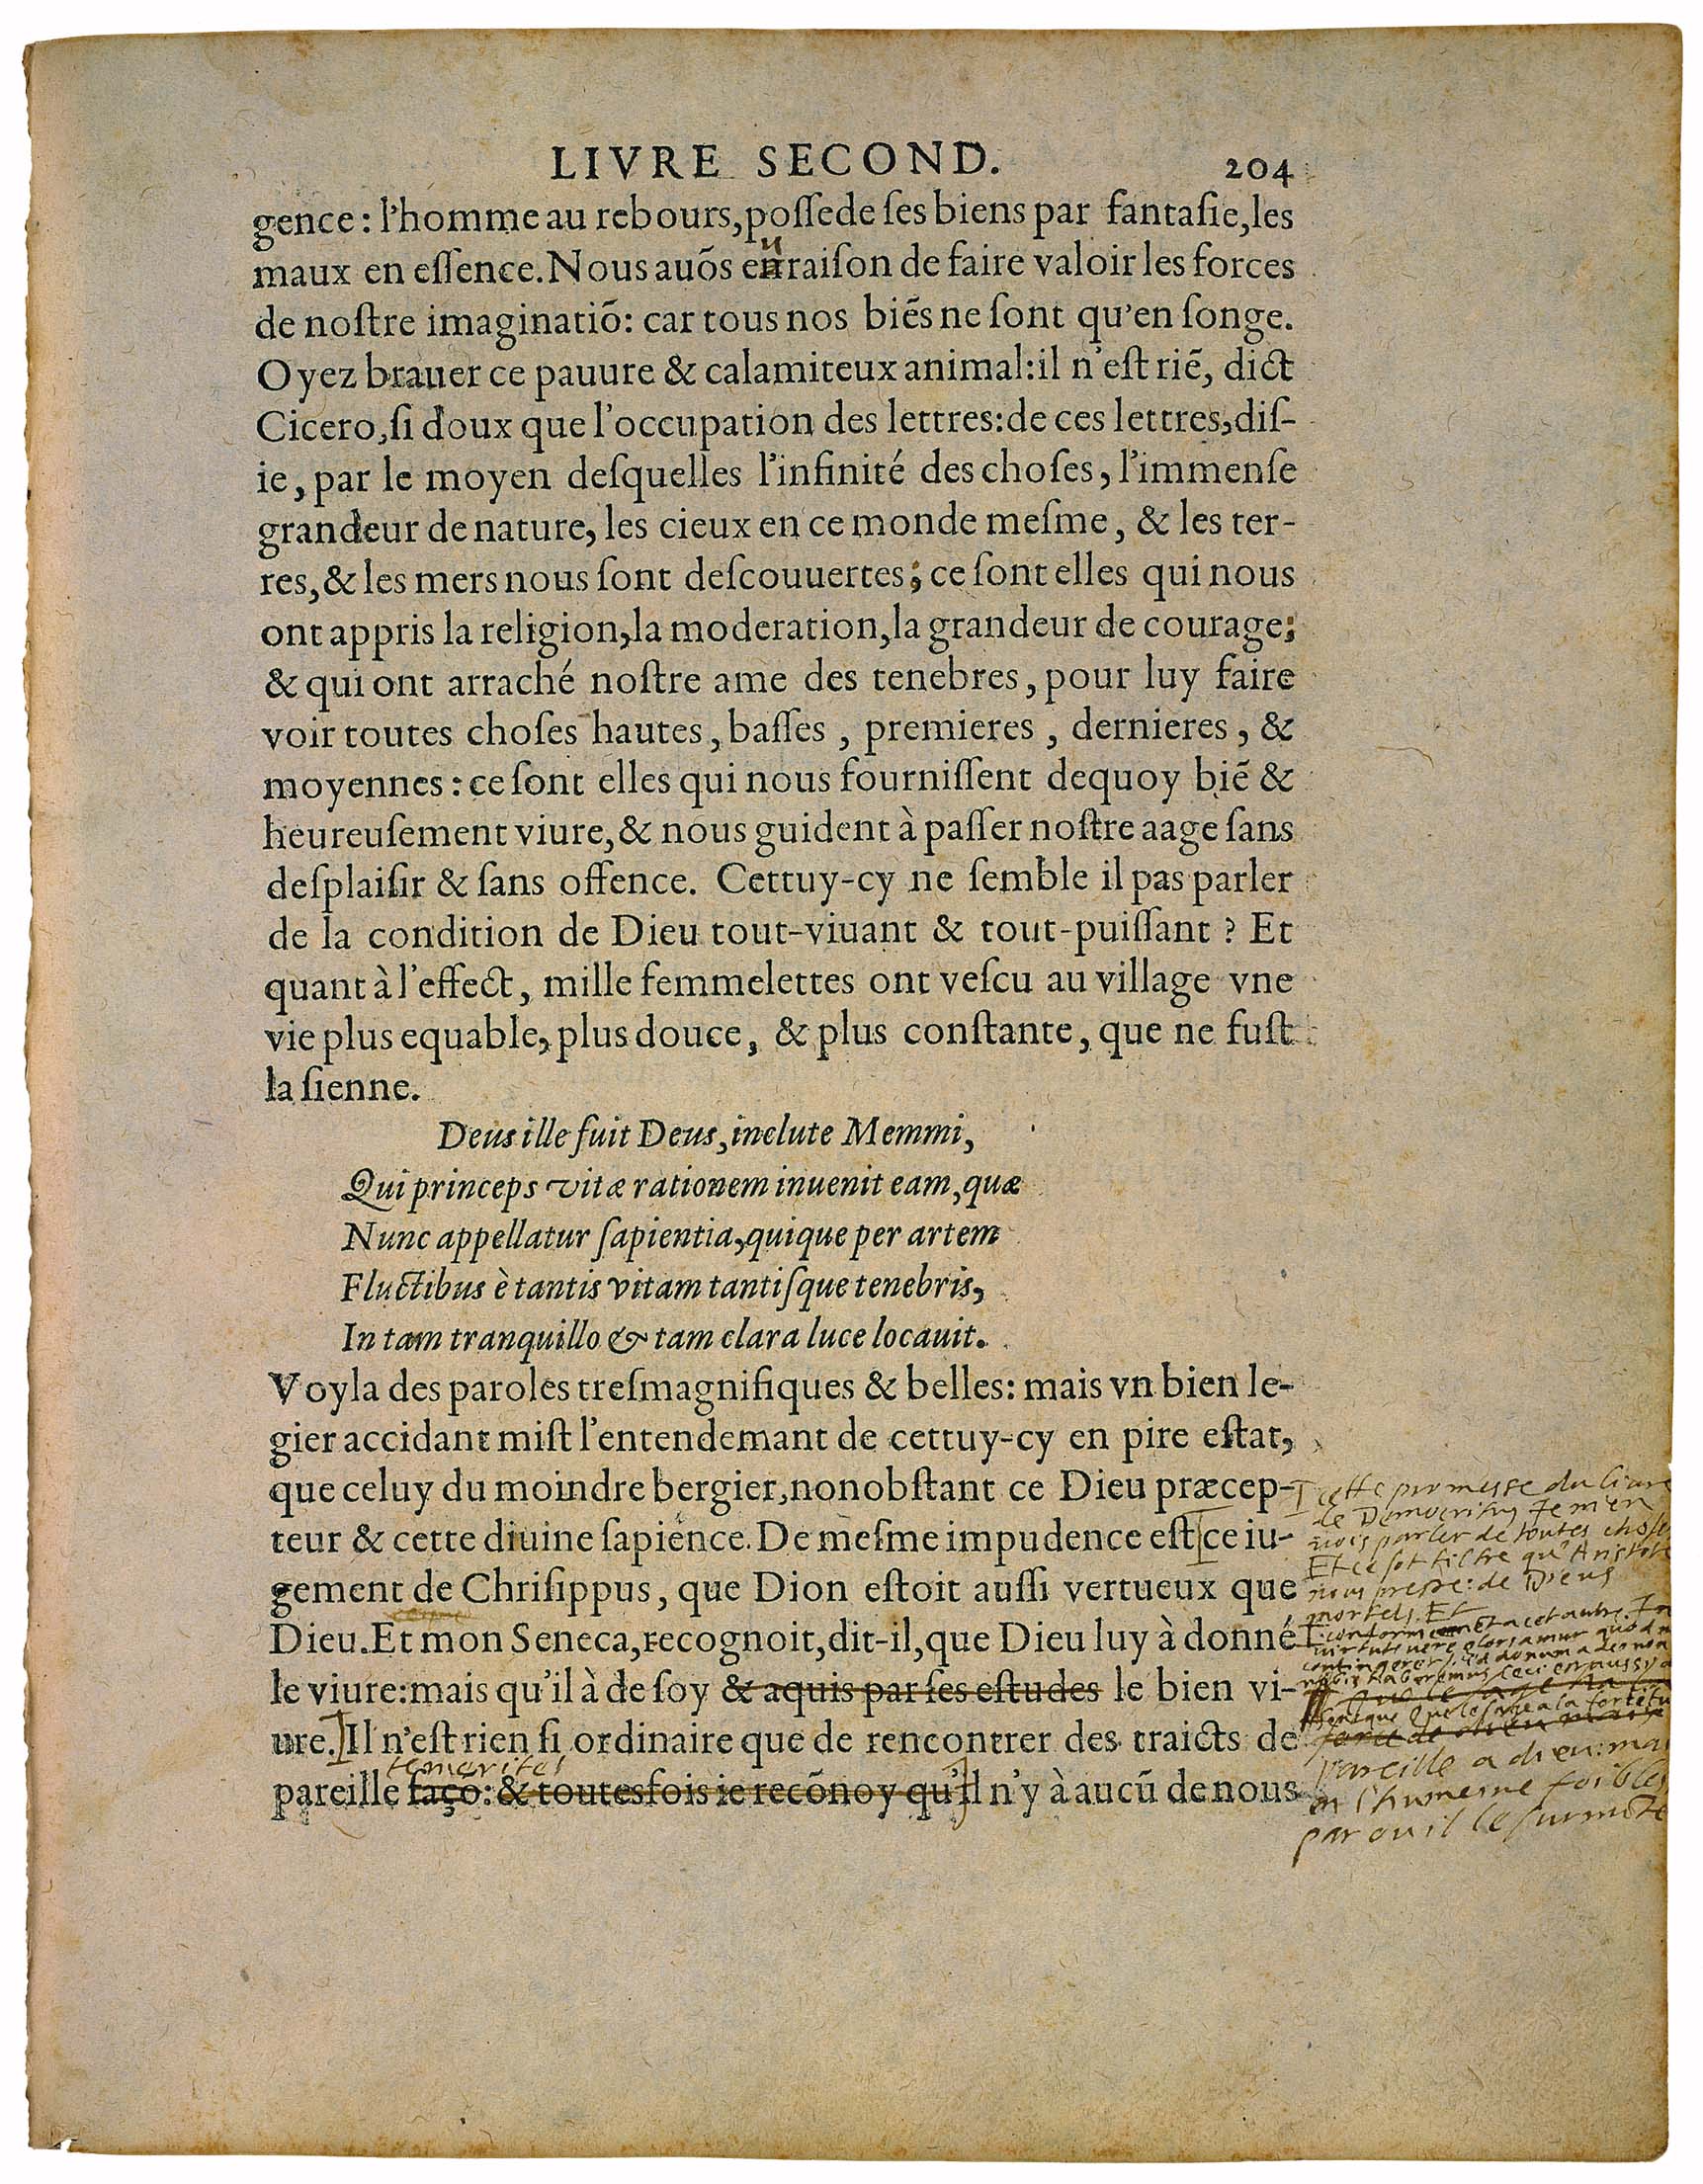 LIVRE SECOND. 204
gence: l'homme au rebours, poſſede ſes biens par fantaſie, les
maux en eſſence. Nous auõs eu raiſon de faire valoir les forces
de noſtre imaginatiõ: car tous nos biẽs ne ſont qu'en ſonge.
Oyez brauer ce pauure & calamiteux animal: il n'eſt riẽ, dict
Cicero, ſi doux que l'occupation des lettres: de ces lettres, diſ-
ie, par le moyen deſquelles l'infinité des choſes, l'immenſe
grandeur de nature, les cieux en ce monde meſme, & les ter-
res, & les mers nous ſont deſcouuertes; ce ſont elles qui nous
ont appris la religion, la moderation, la grandeur de courage;
& qui ont arraché noſtre ame des tenebres, pour luy faire
voir toutes choſes hautes, baſſes, premieres, dernieres, &
moyennes: ce ſont elles qui nous fourniſſent dequoy biẽ &
heureuſement viure, & nous guident à paſſer noſtre aage ſans
deſplaiſir & ſans offence. Cettuy-cy ne ſemble il pas parler
de la condition de Dieu tout-viuant & tout-puiſſant? Et
quant à l'effect, mille femmelettes ont veſcu au village vne
vie plus equable, plus douce, & plus conſtante, que ne fuſt
la ſienne.
Deus ille fuit Deus, inclute Memmi,
Qui princeps vitæ rationem inuenit eam, quæ
Nunc appellatur ſapientia, quique per artem
Fluctibus è tantis vitam tantiſque tenebris,
In tam tranquillo & tam clara luce locauit.
Voyla des paroles treſmagnifiques & belles: mais vn bien le-
gier accidant miſt l'entendemant de cettuy-cy en pire eſtat,
que celuy du moindre bergier, nonobſtant ce Dieu præcep-
teur & cette diuine ſapience. De meſme impudence eſt ce iu-
gement de Chriſippus, que Dion eſtoit auſſi vertueux que
Dieu. Et mon Seneca, recognoit, dit-il, que Dieu luy à donné
le viure: mais qu'il à de ſoy & aquis par ſes eſtudes le bien vi-
ure. Il n'eſt rien ſi ordinaire que de rencontrer des traicts de
temerité
pareille façõ: & toutesfois ie recõnoy qu'il n'y à aucũ de nous
cette promesse du livre
de Democritus Je m'en
vois parler de toutes chose
Et ce sot tiltre qu'Aristote
nous preste: de Dieus
mortels. Et
Et a cet autre. In
virtute vere gloriamur quod n
contingeret si id donum a deo non
a nobis haberemus Ceci est aussy
que le sage a la
pareille a dieu: mai
en l'humeine foibles
par ou il le surmõte